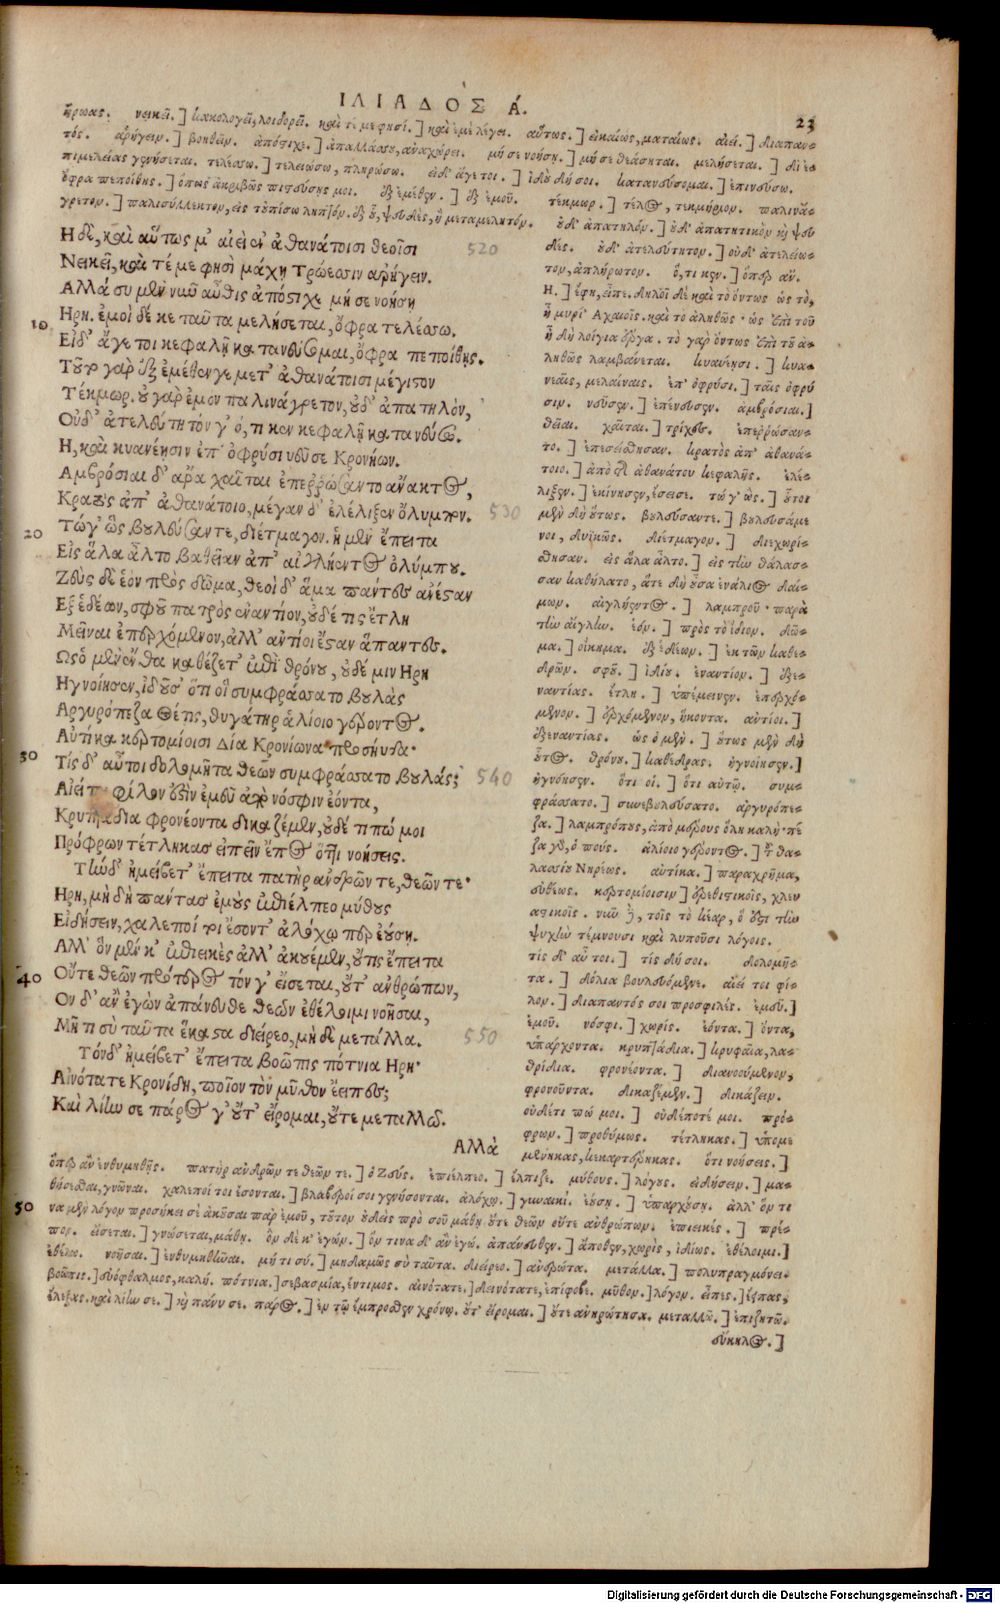 ΙΛΙΑΔΟΣ Ά.
23
ἥρωας. νεικεῖ.] κακολογεῖ, λοιδορεῖ. καὶ τέ με φησί.] καὶ ἐμὲ λέγει. αὔτως.] εἰκαίως, ματαίως. αἰεί.] διαπαν-
τός. ἀρήγειν.] βοηθεῖν. ἀπόστιχε.] ἀπαλλάσου, ἀναχώρει. μή σε νοήσῃ.] μή σε θεάσηται. μελήσεται.] δι'
πιμελείας γενήσεται. τελέσσω.] τελειώσω, πληρώσω. εἰ δ' ἄγε τοι.] ἰδοὺ δή σοι. κατανεύσομαι.] ἐπινεύσω.
ὄφρα πεποίθῃς.] ὅπως ἀκριβῶς πιστεύσῃς μοι. ἐξ ἐμέθεν.] ἐξ ἐμοῦ. τέκμωρ.] τέλος, τεκμήριον. παλινά-
γρετον.] παλισύλλεκτον, εἰς τοὐπίσω ληπτόν. ψευδὲς, ἢ μεταμελητόν. οὐδ' ἀπατηλόν.] οὐδ' ἀπατητικὸν ψευ
Η δὲ, καὶ αὔτως μ' αἰὲν ἀθανάτοισι θεοῖσι
520
Νεικεῖ, καὶ τέ με φησὶ μάχῃ Τρώεσσιν ἀρήγειν.
Αλλὰ σὺ μὲν νῦν αὖθις ἀπόστιχε μή σε νοήσῃ
10
Ηρη. ἐμοὶ δέ κε ταῦτα μελήσεται, ὄφρα τελέσσω.
Εἰ δ' ἄγε τοι κεφαλῇ κατανεύσομαι, ὄφρα πεποίθῃς.
Τοῦτο γὰρ ἐξ ἐμέθεν γε μετ' ἀθανάτοισι μέγιστον
Τέκμωρ. οὐ γὰρ ἐμὸν παλινάγρετον, οὐδ' ἀπατηλὸν,
Οὐδ' ἀτελεύτητόν γ' ὅ, τι κεν κεφαλῇ κατανεύσω.
Η, καὶ κυανέῃσιν ἐπ' ὀφρύσι νεῦσε Κρονίων.
Αμβρόσιαι δ' ἄρα χαῖται ἐπερρώσαντο ἄνακτος,
Κρατὸς ἀπ' ἀθανάτοιο, μέγαν δ' ἐλέλιξεν ὄλυμπον.
530
20
Τώγ' ὣς βουλεύσαντε, διέτμαγον. ἡ μὲν ἔπειτα
Εἰς ἅλα ἆλτο βαθεῖαν ἀπ' αἰγλήεντος ὀλύμπου.
Ζεὺς δὲ ἑὸν πρὸς δῶμα, θεοὶ δ' ἅμα πάντες ἀνέσταν
Εξ ἑδέων, σφοῦ πατρὸς ἐναντίον, οὐδέ τις ἔτλη
Μεῖναι ἐπερχόμενον, ἀλλ' ἀντίοι ἔσταν ἅπαντες.
Ως ὁ μὲν ἔνθα καθέζετ' ἐπὶ θρόνου, οὐδέ μιν Ηρη
Ηγνοίησεν, ἰδοῦσ' ὅτι οἱ συμφράσσατο βουλὰς
Αργυρόπεζα Θέτις, θυγάτηρ ἁλίοιο γέροντος.
Αὐτίκα κερτομίοισι Δία Κρονίωνα προσηύδα·
30
Τίς δ' αὖ τοι δολομῆτα θεῶν συμφράσσατο βουλάς;
540
Αἰεί τοι φίλον ἐστὶν ἐμεῦ ἀπὸ νόσφιν ἐόντα,
Κρυπτάδια φρονέοντα δικαζέμεν, οὐδέ τι πώ μοι
Πρόφρων τέτληκας εἰπεῖν ἔπος ὅττι νοήσεις.
Τὴν δ' ἠμείβετ' ἔπειτα πατὴρ ἀνδρῶν τε, θεῶν τε·
Ηρη, μὴ δὴ πάντας ἐμοὺς ἐπιέλπεο μύθους
Εἰδήσειν, χαλεποί τοι ἔσοντ' ἀλόχῳ περ ἐούσῃ.
Αλλ' ὃν μέν κ' ἐπιεικὲς ἀλλ' ἀκουέμεν, οὔτις ἔπειτα
40
Οὔτε θεῶν πρότερος τόν γ' εἴσεται, οὔτ' ἀνθρώπων,
Ον δ' ἂν ἐγὼν ἀπάνευθε θεῶν ἐθέλοιμι νοῆσαι,
Μήτι σὺ ταῦτα ἕκαστα διείρεο, μὴ δὲ μετάλλα.
550
Τόνδ' ἠμείβετ' ἔπειτα βοῶπις πότνια Ηρη·
Αἰνότατε Κρονίδη, ποῖον τὸν μῦθον ἔειπες;
Καὶ λίην σε πάρος γ' οὔτ' εἴρομαι, οὔτε μεταλλῶ.
Αλλὰ
δές. οὐδ' ἀτελεύτητον.] οὐδ' ἀτελείω-
τον, ἀπλήρωτον. ὅ, τι κεν.] ὅπερ ἄν.
Η.] ἔφη, εἶπε. δηλοῖ δὲ καὶ τὸ ὄντως ὡς τὸ,
ἦ μυρί' Αχαιοῖς. καὶ τὸ ἀληθῶς· ὡς ἐπὶ τοῦ
ἦ δὴ λοίγια ἔργα. τὸ γὰρ ὄντως ἐπὶ τοῦ ἀ-
ληθῶς λαμβάνεται. κυανέῃσι.] κυα-
νεαῖς, μελαίναις. ἐπ' ὀφρύσι.] ταῖς ὀφρύ
σιν. νεῦσεν.] ἐπένευσεν. ἀμβρόσιαι.]
θεῖαι. χαῖται.] τρίχες. ἐπερρώσαν-
το.] ἐπεσείσθησαν. κρατὸς ἀπ' ἀθανά-
τοιο.] ἀπὸ τῆς ἀθανάτου κεφαλῆς. ἐλέ-
λιξεν.] ἐκίνησεν, ἔσεισε. τώ γ' ὥς.] οὗτοι
μὲν δὴ οὕτως. βουλεύσαντε.] βουλευσάμε
νοι, δυϊκῶς. διέτμαγον.] διεχωρί-
σθησαν. εἰς ἅλα ἆλτο.] εἰς τὴν θάλασ-
σαν καθήλατο, ἅτε δὴ οὖσα ἐνάλιος δαί-
μων. αἰγλήεντος.] λαμπροῦ· παρὰ
τὴν αἴγλην. ἑόν.] πρὸς τὸ ἴδιον. δῶ-
μα.] οἴκημα. ἐξ ἑδέων.] ἐκ τῶν καθε-
δρῶν. σφοῦ.] ἰδίου. ἐναντίον.] ἐξε-
ναντίας. ἔτλη.] ὑπέμεινεν. ἐπερχό-
μενον.] ἐρχόμενον, ἥκοντα. ἀντίοι.]
ἐξεναντίας. ὡς ὁ μέν.] οὕτως μὲν δὴ
οὗτος. θρόνου.] καθέδρας. ἠγνοίησεν.]
ἠγνόησεν. ὅτι οἱ.] ὅτι αὐτῷ. συμ-
φράσσατο.] συνεβουλεύσατο. ἀργυρόπε-
ζα.] λαμπρόπους, ἀπὸ μέρους ὅλη καλή· πέ
ζα γὰρ, ὁ πούς. ἁλίοιο γέροντος.] τοῦ θα-
λασσίου Νηρέως. αὐτίκα.] παραχρῆμα,
εὐθέως. κερτομίοισιν] ἐρεθιστικοῖς, χλευ
αστικοῖς. νῦν δὲ, τοῖς τὸ κέαρ, ὅ ἐστι τὴν
ψυχὴν τέμνουσι καὶ λυποῦσι λόγοις.
τίς δ' αὖ τοι.] τίς δή σοι. δολομῆ-
τα.] δόλια βουλευόμενε. αἰεί τοι φί-
λον.] διαπαντός σοι προσφιλές. ἐμεῦ.]
ἐμοῦ. νόσφι.] χωρίς. ἐόντα.] ὄντα,
ὑπάρχοντα. κρυπτάδια.] κρυφαῖα, λα-
θρίδια. φρονέοντα.] διανοούμενον,
φρονοῦντα. δικαζέμεν.] δικάζειν.
οὐδέτι πώ μοι.] οὐδέποτέ μοι. πρό-
φρων.] προθύμως. τέτληκας.] ὑπομε
μένηκας, κεκαρτέρηκας. ὅτι νοήσεις.]
ὅπερ ἂν ἐνθυμηθῇς. πατὴρ ἀνδρῶν τε θεῶν τε.] ὁ Ζεύς. ἐπιέλπεο.] ἔλπιζε. μύθους.] λόγους. εἰδήσειν.] μα-
θήσεσθαι, γνῶναι. χαλεποί τοι ἔσονται.] βλαβεροί σοι γενήσονται. ἀλόχῳ.] γυναικί. ἐούσῃ.] ὑπαρχούσῃ. ἀλλ' ὅν τι
50
να μὲν λόγον προσήκει σὲ ἀκοῦσαι παρ' ἐμοῦ, τοῦτον οὐδεὶς πρὸ σοῦ μάθῃ οὔτε θεῶν οὔτε ἀνθρώπων. ἐπιεικές.] πρέ-
πον. εἴσεται.] γνώσεται, μάθῃ. ὃν δέ κ' ἐγών.] ὅν τινα δ' ἂν ἐγώ. ἀπάνευθεν.] ἄποθεν, χωρίς, ἰδίως. ἐθέλοιμι.]
θέλω. νοῆσαι.] ἐνθυμηθῆναι. μή τι σύ.] μηδαμῶς σὺ ταῦτα. διείρεο.] ἀνερώτα. μετάλλα.] πολυπραγμόνει.
βοῶπις.] εὐόφθαλμος, καλή. πότνια.] σεβασμία, ἔντιμος. αἰνότατε.] δεινότατε, ἐπίφοβε. μῦθον.] λόγον. εἶπες.] εἶπας,
ἔλεξας. καὶ λίην σε.] καὶ πάνυ σε. πάρος.] ἐν τῷ ἔμπροσθεν χρόνῳ. οὔτ' εἴρομαι.] οὔτε ἀνηρώτησα. μεταλλῶ.] ἐπιζητῶ.
εὔκηλος.]
Digitalisierung gefördert durch die Deutsche Forschungsgemeinschaft - DFG